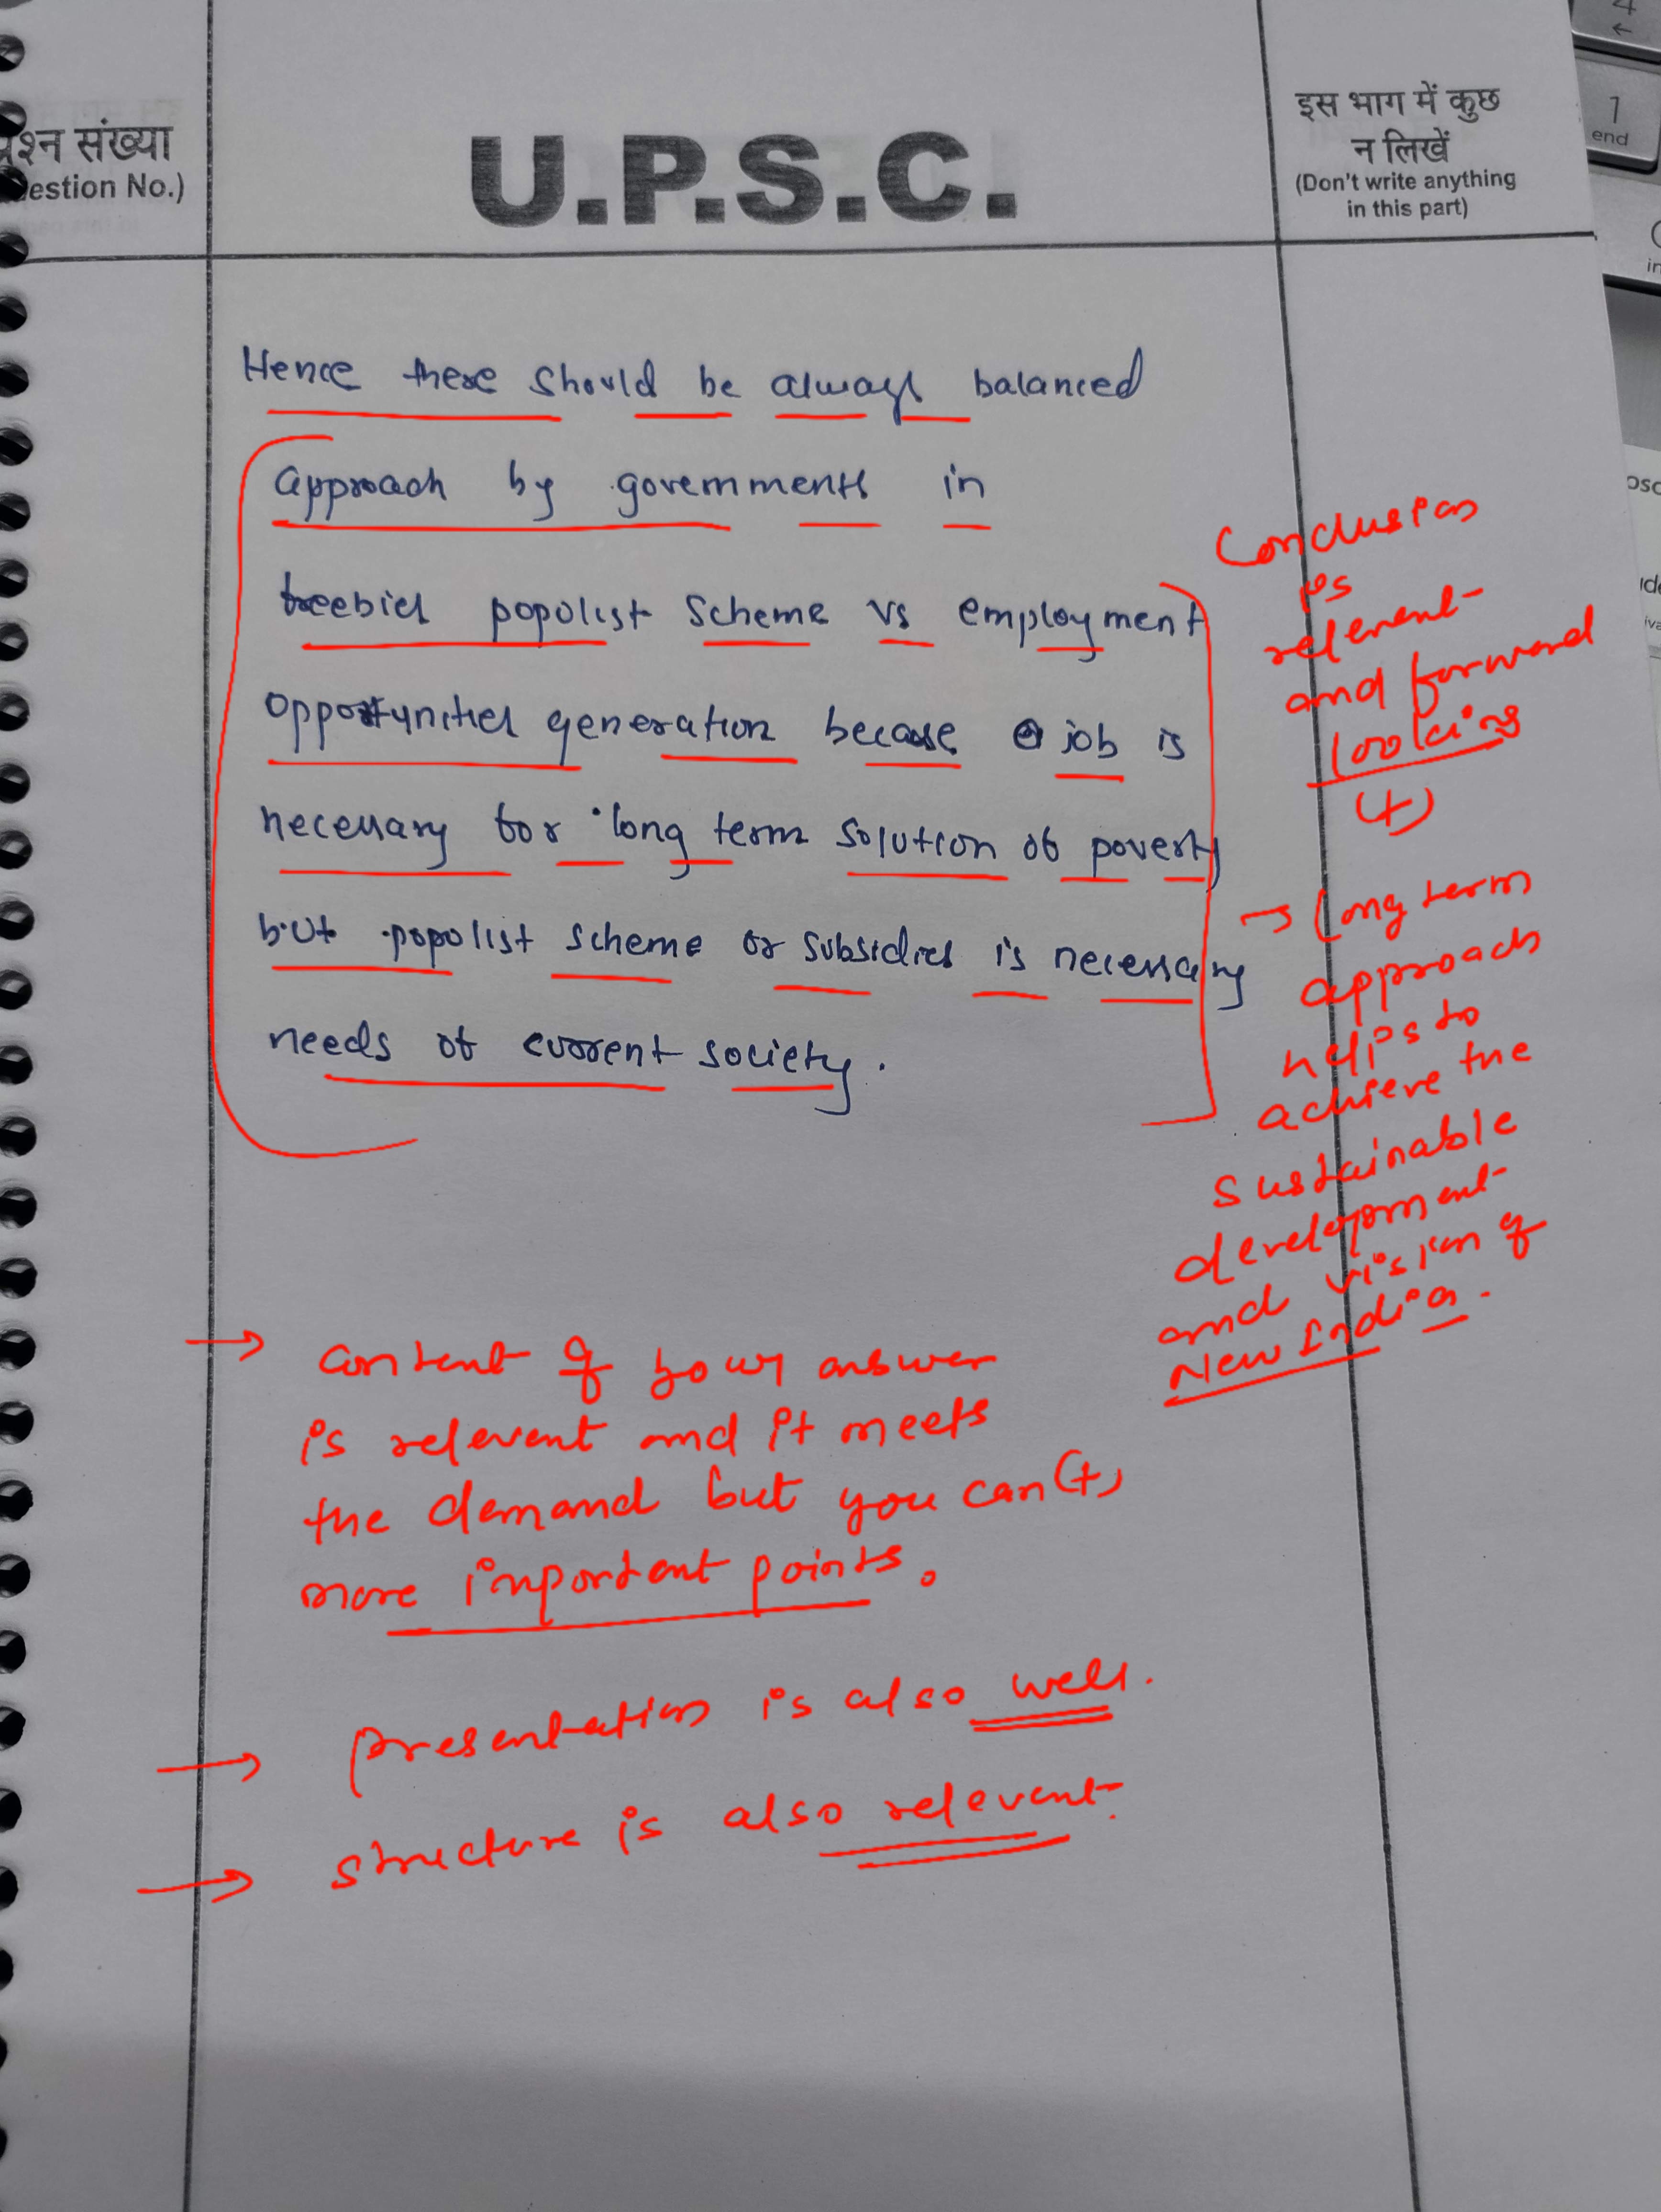 प्रश्न संख्या
estion No.)
U.P.S.C.
इस भाग में कुछ
न लिखें
(Don't write anything
in this part)
4
←
1
end
Hence there should be always balanced
approach by governments in
freebies popolist scheme vs employment
opportunities generation because a job is
necessary for long term solution of poverty
but popolist scheme or subsidies is necessary
needs of current society.
Conclusion
is
relevent
and forward
looking
(+)
→ Long term
approach
helps to
achieve the
sustainable
development
and vision of
New India.
→ content of your answer
is relevent and it meets
the demand but you can (+)
more important points.
→ presentation is also well.
→ structure is also relevent.